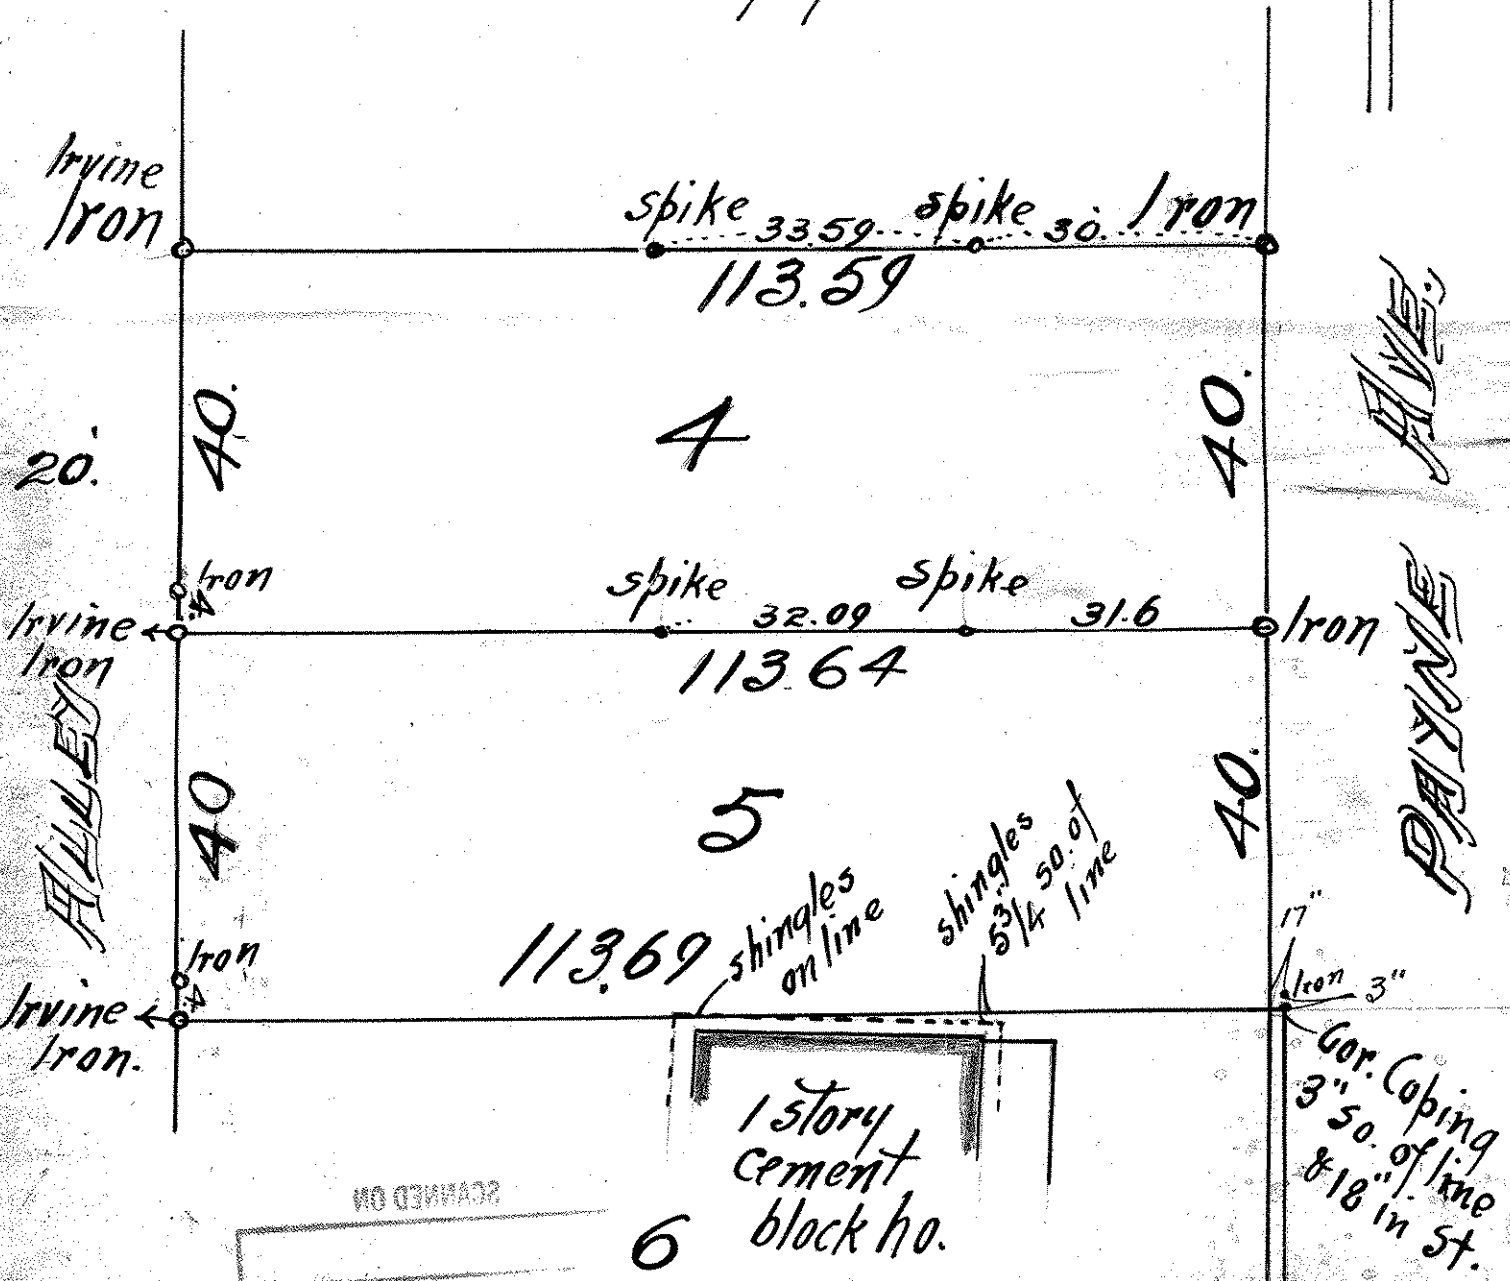 Irvine
Iron
spike
33.59
spike
30.
Iron
113.59
AVE.
40.
4
40.
20.
Iron
4
Irvine
Iron
spike
32.09
spike
31.6
Iron
113.64
ALLEY
PAYNE
40
5
40.
shingles
on line
shingles
5 3/4" so. of
line
113.69
17"
Iron
4
Irvine
Iron.
Iron
3"
Cor. Coping
3" so. of line
& 18" in St.
1 story
cement
block ho.
SCANNED ON
6